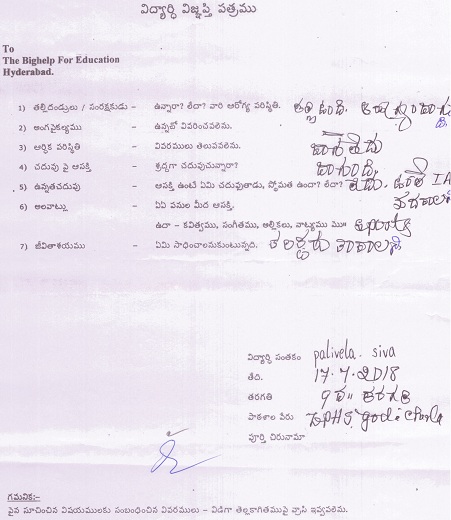 విద్యార్ధి విజ్ఞప్తి పత్రము
To
The Bighelp For Education
Hyderabad.
1) తల్లిదండ్రులు / సంరక్షకుడు – ఉన్నారా? లేదా? వారి ఆరోగ్య పరిస్థితి. తల్లి ఉంది.
2) అంగవైకల్యము – ఉన్నచో వివరించవలెను.
3) ఆర్ధిక పరిస్థితి – వివరములు తెలుపవలెను. బాగాలేదు
4) చదువు పై ఆసక్తి – శ్రద్ధగా చదువుచున్నారా? బాగుంది
5) ఉన్నతచదువు – ఆసక్తి ఉంటే ఏమి చదువుతాడు, స్ధోమత ఉందా? లేదా? లేదు.
6) అలవాట్లు – ఏఏ పనుల మీద ఆసక్తి.
ఉదా – కవిత్వము, సంగీతము, అల్లికలు, నాట్యము ము॥ sports
7) జీవితాశయము – ఏమి సాధించాలనుకుంటున్నది.
విద్యార్ధి సంతకం palivela. siva
తేది. 17.7.2018
తరగతి 9వ తరగతి
పాఠశాల పేరు ZPHS. godicherla
పూర్తి చిరునామా
గమనిక:-
పైన సూచించిన విషయములకు సంబంధించిన వివరములు – విడిగా తెల్లకాగితముపై వ్రాసి ఇవ్వవలెను.